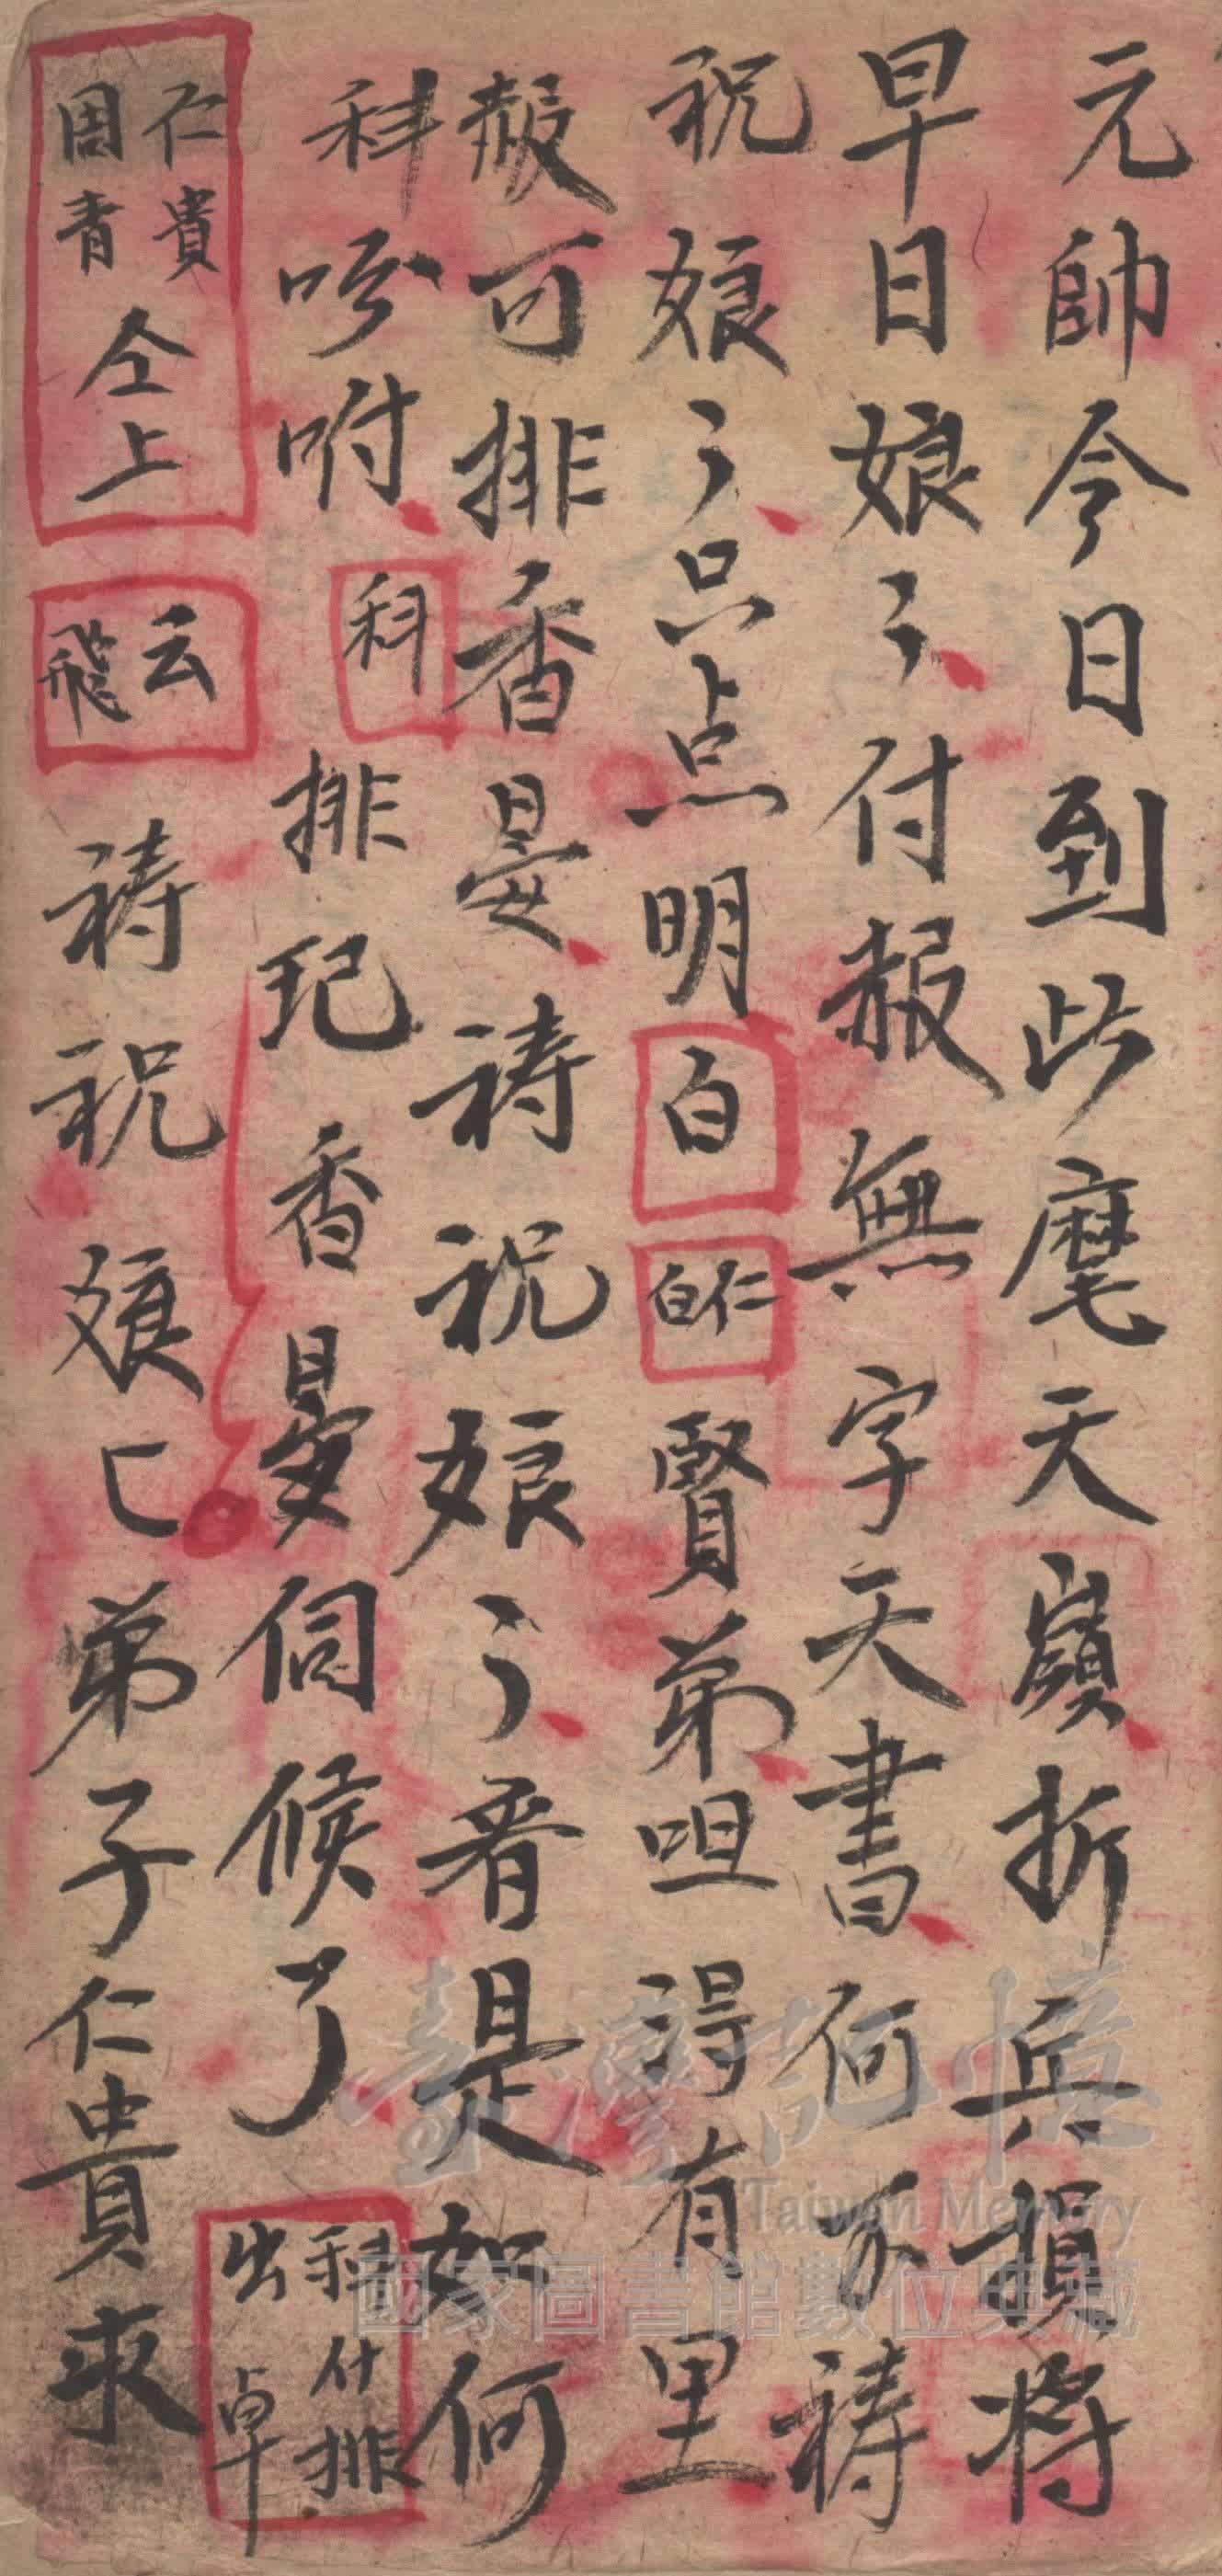 元帥今日到此麾天嶺折兵損将
早日娘〻付報無字天書何不祷
祝娘〻只点明白 仁白 賢弟咀得有里
報可排香晏祷祝娘〻看是如何
科吩咐 科 排玘香晏伺候了 科什排出卓
仁貴周青仝上 云飛 祷祝娘匕弟子仁貴求
臺灣記憶
Taiwan Memory
國家圖書館數位典藏